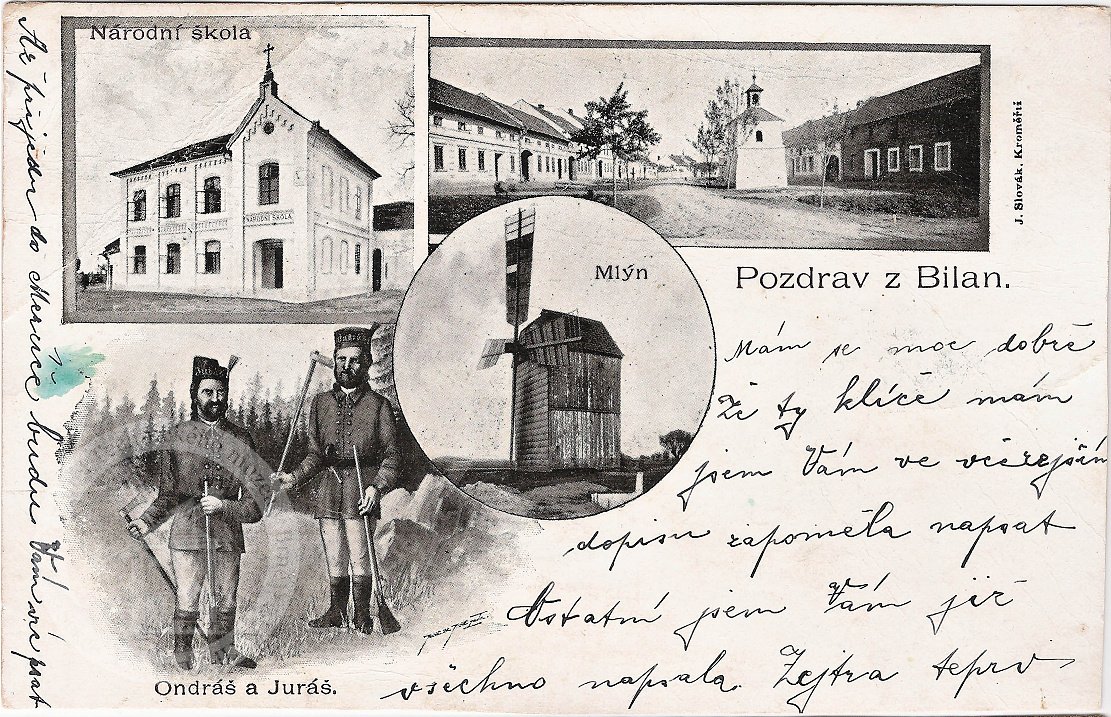 Národní škola
NÁRODNÍ ŠKOLA
J. Slovák, Kroměříž
Mlýn
Pozdrav z Bilan.
Mám se moc dobře
Že ty klíče mám
jsem Vám ve včerejším
dopisu zapoměla napsat
Ostatní jsem Vám již
všechno napsala. Zejtra teprv
Ondráš a Juráš.
Až přijedu do budu Vám psat